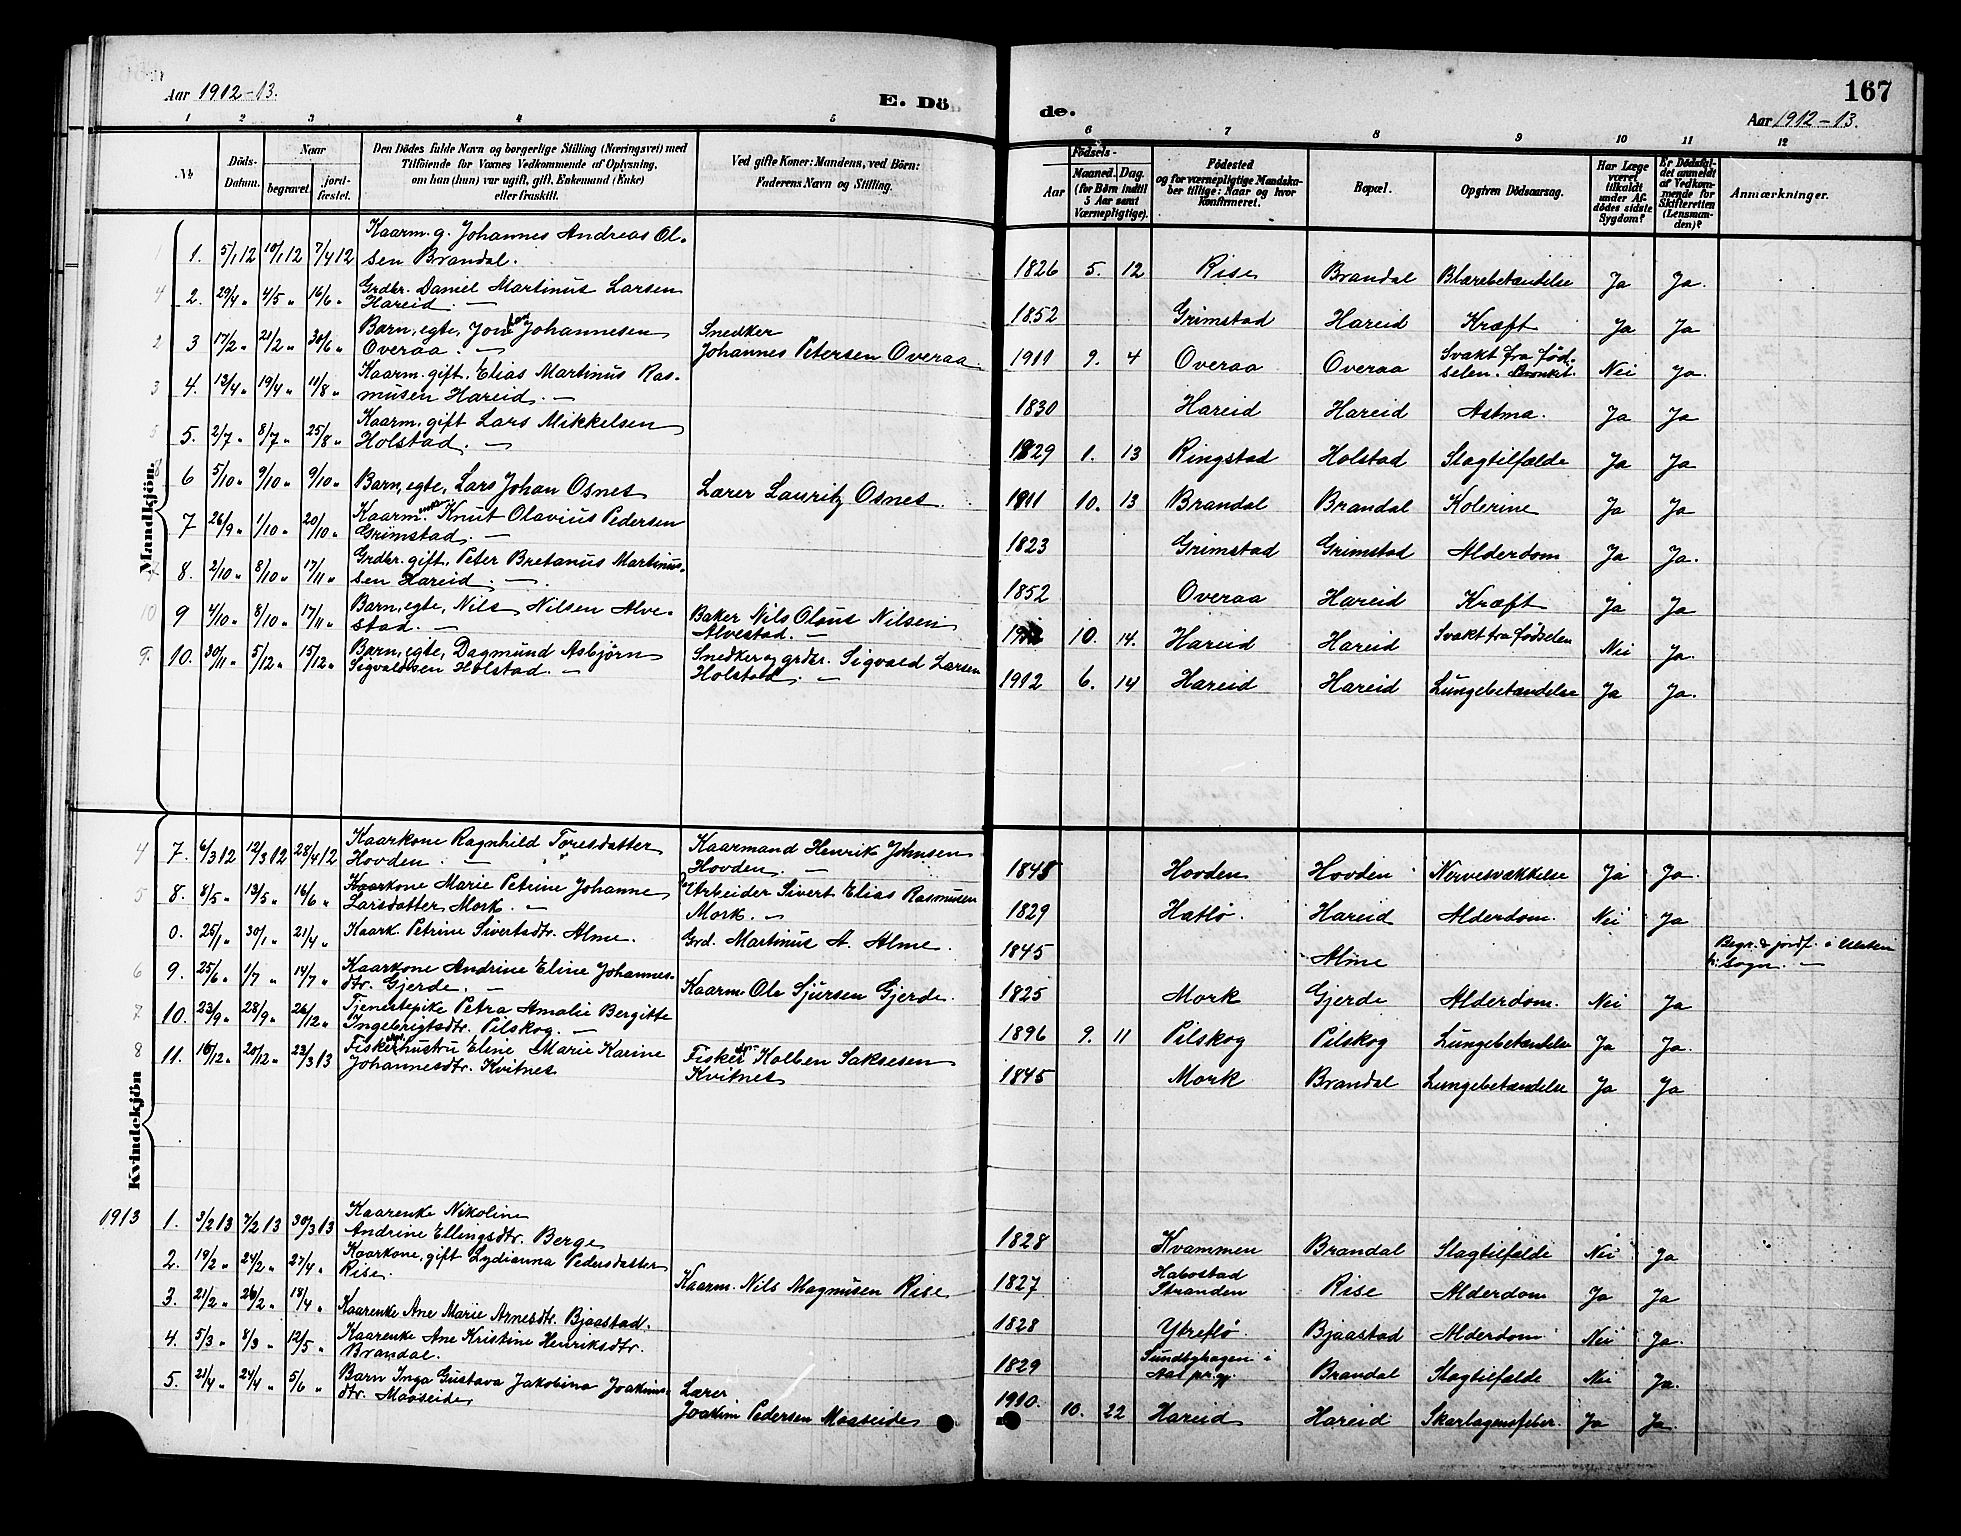 Aar 1912-13.
E. Dö
de.
167
Aar 1912-13.
1 2 3 4 5 6 7 8 9 10 11 12
No
Döds-Datum.
Naar
begravet.
jord-fæstet.
Den Dödes fulde Navn og borgerlige Stilling (Næringsvei) med
Tilföiende for Voxnes Vedkommende af Oplysning,
om han (hun) var ugift, gift, Enkemand (Enke)
eller fraskilt.
Ved gifte Koner: Mandens, ved Börn:
Faderens Navn og Stilling.
Födsels-
Aar
Maaned. Dag.
(for Börn indtil
5 Aar samt
Værnepligtige).
Födested
og for værnepligtige Mandska-
ber tillige: Naar og hvor
Konfirmeret.
Bopæl.
Opgiven Dödsaarsag.
Har Læge
været
tilkaldt
under Af-
dödes sidste
Sygdom?
Er Dödsfal-
det anmeldt
af Vedkom-
mende for
Skifteretten
(Lensman-
den)?
Anmærkninger.
Mandkjön.
1. 5/1 12 10/1 12 7/4 12 Kaarm. g. Johannes Andreas Ol-
sen Brandal. 1826 5. 12 Rise Brandal Blærebetændelse Ja Ja.
2. 29/4 " 4/5 " 16/6 " Grdbr. Daniel Martinus Larsen
Hareid. — 1852 Grimstad Hareid Kræft Ja Ja
3 17/2 " 21/2 " 30/6 " Barn, egte, Jon Johannesen
Overaa. — Snedker
Johannes Petersen Overaa. 1911 9. 4 Overaa Overaa Svakt fra fød-
selen. Bronkit. Nei Ja.
4. 13/4 " 19/4 " 11/8 " Kaarm. gift, Elias Martinus Ras-
musen Hareid. — 1830 Hareid Hareid Astma. Ja Ja
5. 2/7 " 8/7 " 25/8 " Kaarm. gift Lars Mikkelsen
Holstad. — 1829 1. 13 Ringstad Holstad Slagtilfælde Ja Ja
6 5/10 " 9/10 " 9/10 " Barn, egte, Lars Johan Osnes Lærer Lauritz Osnes. 1911 10. 13 Brandal Brandal Kolerine Ja Ja
7 26/9 " 1/10 " 20/10 " Kaarm. enkem. Knut Olavius Pedersen
Grimstad. — 1823 Grimstad Grimstad Alderdom Ja Ja.
8. 2/10 " 8/10 " 17/11 " Grdbr. gift, Peter Bretanus Martinus-
sen Hareid. — 1852 Overaa Hareid Kræft Ja Ja
9 4/10 " 8/10 " 17/11 " Barn, egte, Nils Nilsen Alve-
stad. — Baker Nils Olaus Nilsen
Alvestad. — 1912 10. 14. Hareid Hareid Svakt fra fødselen Nei Ja.
10. 30/11 " 5/12 " 15/12 " Barn, egte, Dagmund Asbjørn
Sigvaldsen Holstad. — Snedker og grdbr. Sigvald Larsen
Holstad. — 1912 6. 14 Hareid Hareid Lungebetændelse Ja Ja.
Kvindekjön
7. 6/3 12 12/3 12 28/4 12 Kaarkone Ragnhild Toresdatter
Hovden. — Kaarmand Henrik Johnsen
Hovden. — 1848 Hovden Hovden Nervesvækkelse Ja Ja.
8. 8/5 " 13/5 " 16/6 " Kaarkone Marie Petrine Johanne
Larsdatter Mork. — Arbeider Sivert Elias Rasmusen
Mork. — 1829 Hatlø. Hareid Alderdom. Nei Ja
0. 25/1 " 30/1 " 21/4 " Kaark. Petrine Sivertsdtr. Alme. Grd. Martinus A. Alme. 1845 Alme Begr. & jordf. i Ulsten
sogn. —
9. 25/6 " 1/7 " 14/7 " Kaarkone Andrine Eline Johannes-
dtr. Gjerde. — Kaarm. Ole Sjursen Gjerde. 1825 Mork Gjerde Alderdom. Nei Ja
10. 23/9 " 28/9 " 26/12 " Tjenestepike Petra Amalie Bergitte
Ingebrigtsdtr. Pilskog. — 1896 9. 11 Pilskog Pilskog Lungebetændelse Ja Ja.
11. 16/12 " 20/12 " 23/3 13 Fiskerhustru Eline Marie Karine
Johannesdtr. Kvitnes Fisker Kolben Saksesen
Kvitnes 1845 Mork Brandal Lungebetændelse Ja Ja
1913 1. 3/2 13 7/2 13 30/3 13 Kaarenke Nikoline
Andrine Ellingsdtr. Berge 1828 Kvammen Brandal Slagtilfælde Nei Ja
2. 19/2 " 24/2 " 27/4 " Kaarkone, gift Lydianna Pedersdatter
Rise. Kaarm. Nils Magnusen Rise 1827 Habostad
Stranden Rise Alderdom Ja Ja
3. 21/2 " 26/2 " 18/4 " Kaarenke Ane Marie Arnesdtr. Bjaastad. 1828 Ytreflø. Bjaastad Alderdom Nei Ja.
4. 5/3 " 8/3 " 12/5 " Kaarenke Ane Kristine Henriksdtr.
Brandal. 1829 Sundbyhagen i
Aal pr.gj. Brandal Slagtilfælde Nei Ja.
5. 21/4 " 24/4 " 5/6 " Barn Inga Gustava Jakobina Joakims-
dtr. Maaseide Lærer
Joakim Pedersen Maaseide 1910. 10. 22 Hareid Hareid Skarlagensfeber. Ja Ja.